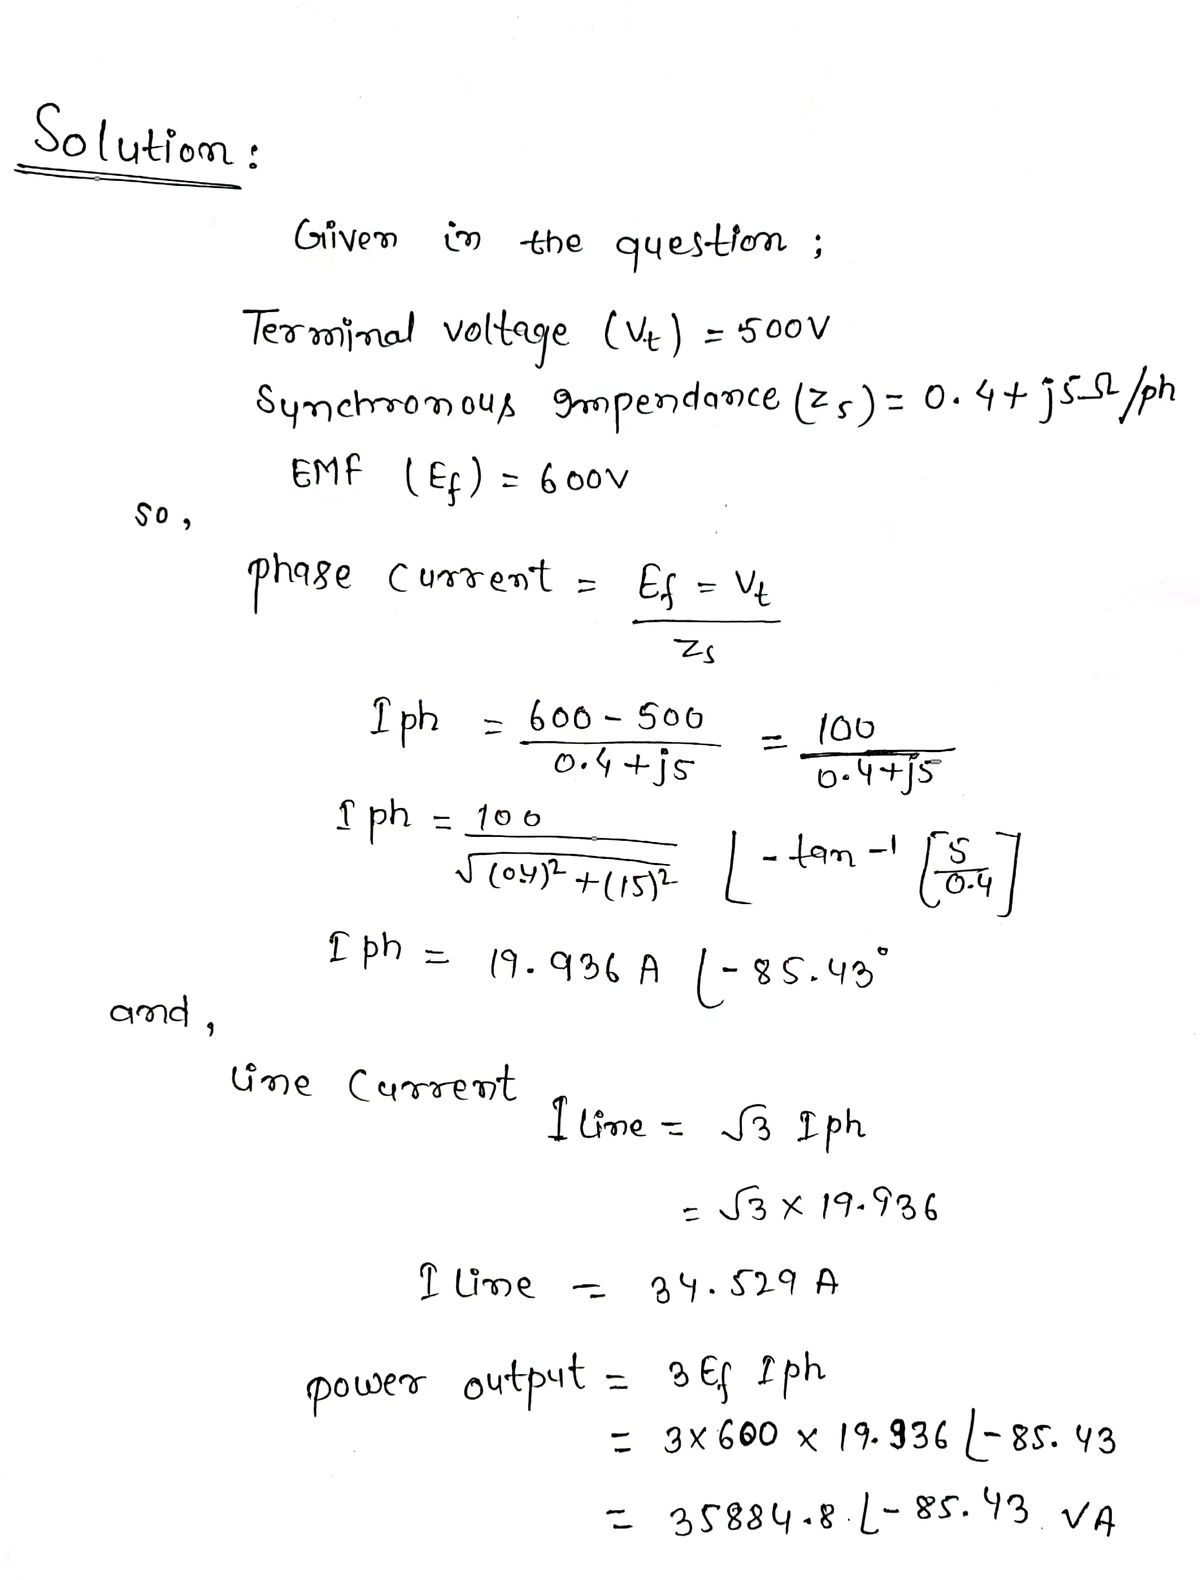 Solution:
Given in the question;
Terminal voltage (Vt) = 500V
Synchronous Impendance (Zs) = 0.4 + j5Ω/ph
EMF (Ef) = 600V
so,
phase current = Ef = Vt / Zs
Iph = 600 - 500 / 0.4 + j5 = 100 / 0.4 + j5
Iph = 100 / √(04)² + (15)² ∠ - tan -1 [5 / 0.4]
Iph = 19.936 A ∠-85.43°
and,
line current
I line = √3 Iph
= √3 × 19.936
I line = 34.529 A
power output = 3 Ef Iph
= 3×600 × 19.936 ∠-85.43
= 35884.8 ∠-85.43 VA